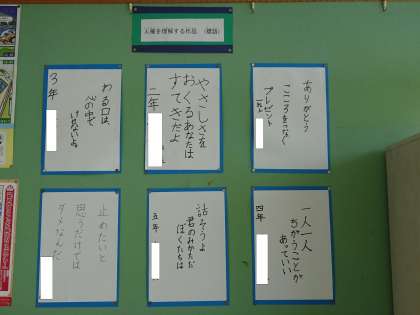 人権を理解する作品 (標語)
ありがとう
こころをつなぐ
プレゼント
一年
やさしさを
おくるあなたは
すてきだよ
二年
わる口は
心の中で
いけないよ
3年
一人一人
ちがうことが
あっていい
四年
話そうよ
君のみかただ
ぼくたちは
五年
止めたいと
思うだけでは
ダメなんだ